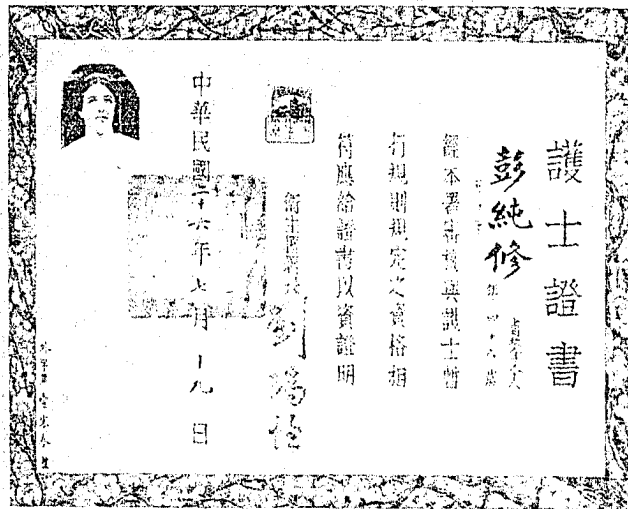 護士證書
彭純修
年四十六歲
經本署審核與護士暫
行規則規定之資格相
符應給證書以資證明
衛生署署長
劉瑞恆
中華民國二十六年七月十九日